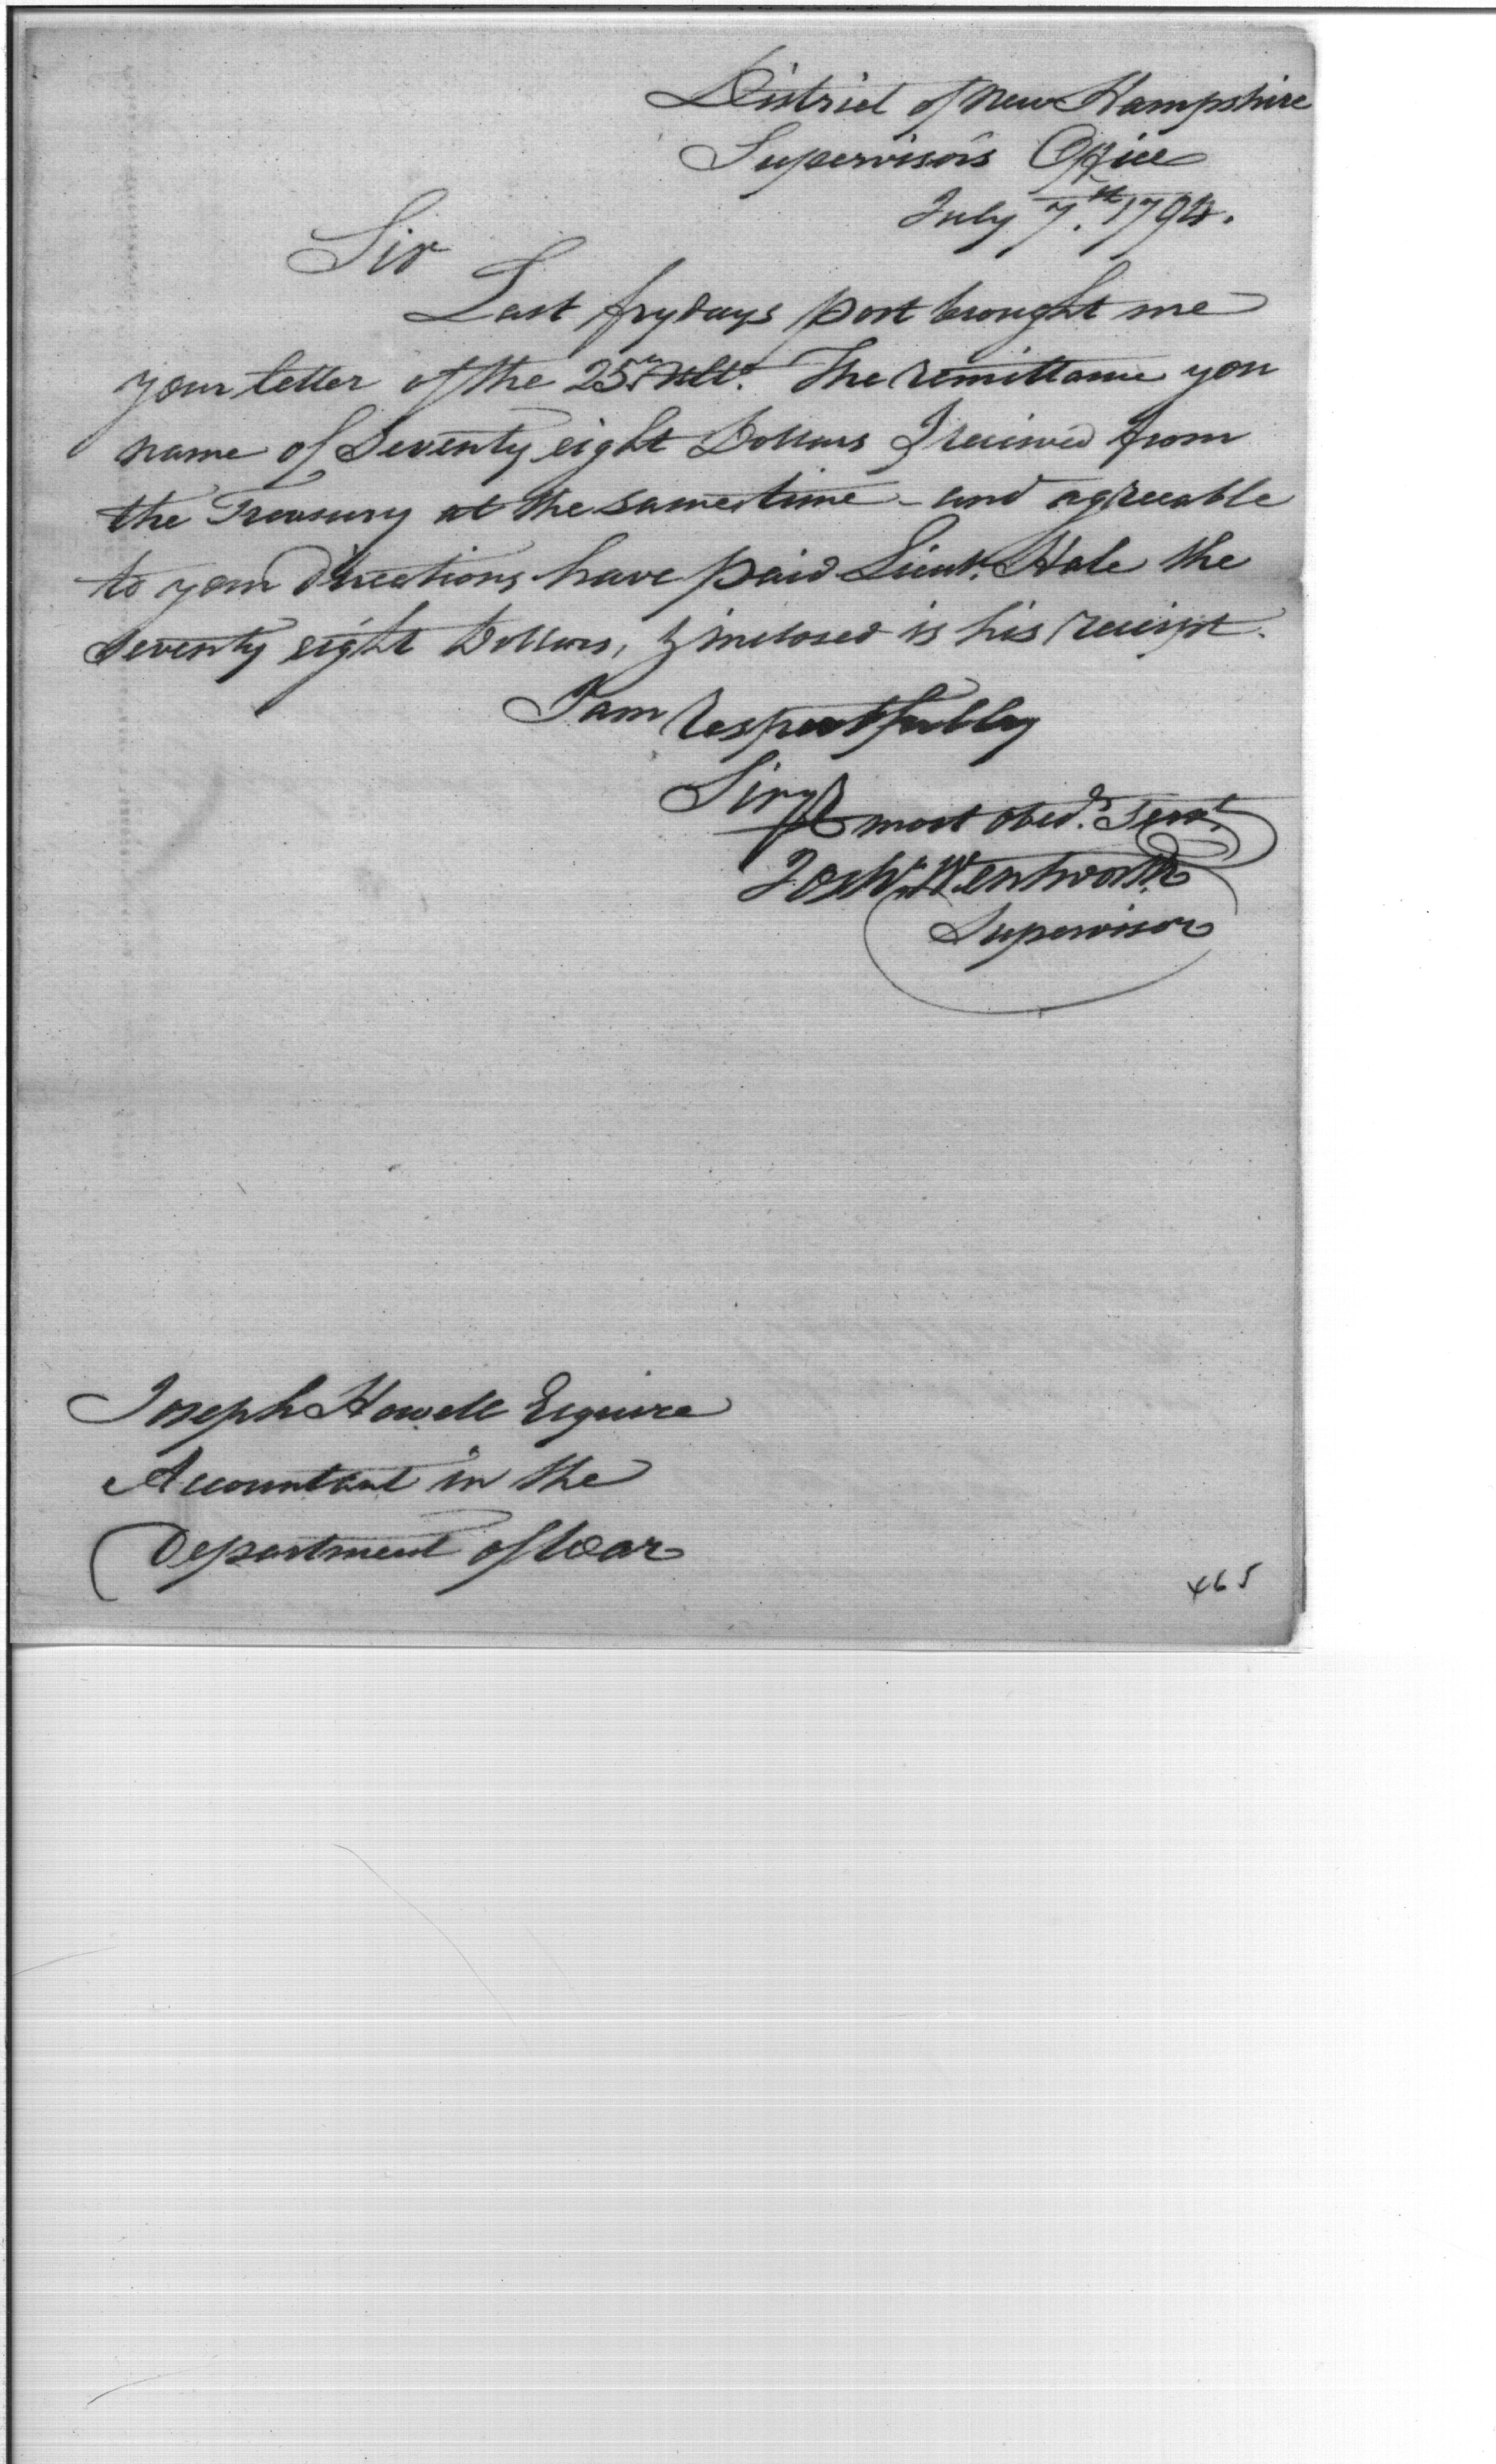 District of New Hampshire
Supervisors Office
July 7.th 1794.
Sir
Last frydays post brought me
your letter of the 25.th Ult.o The remittance you
name of Seventy eight Dollars I received from
the Treasury at the same time - and agreeable
to your directions have paid Lieut. Hale the
Seventy eight Dollars, & inclosed is his receipt.
I am respectfully
Sir yr
most obed.t Serv.t
Josh.a Wentworth
Supervisor
Joseph Howell Esquire
Accountant in the
Department of War
465